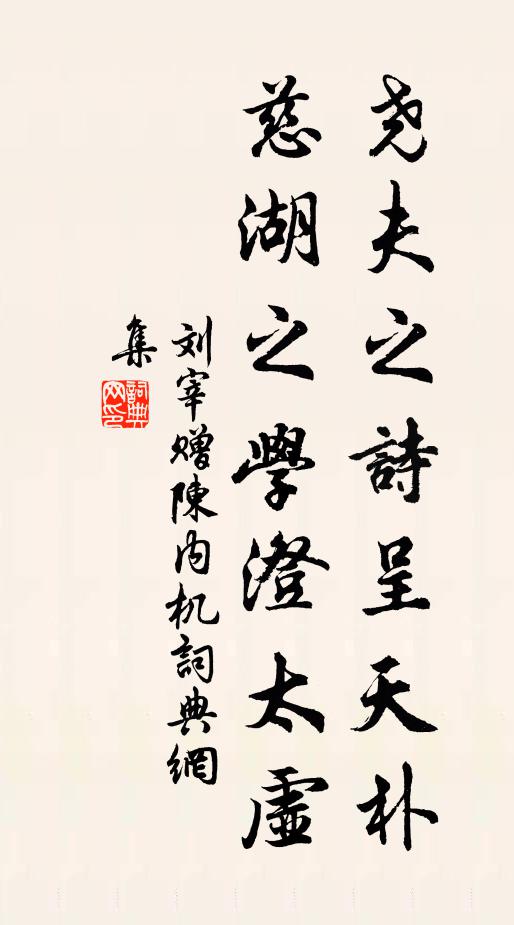 尧夫之詩呈天朴
慈湖之學澄太虛
刘宰赠陳内机詞典網
集
詞典网印